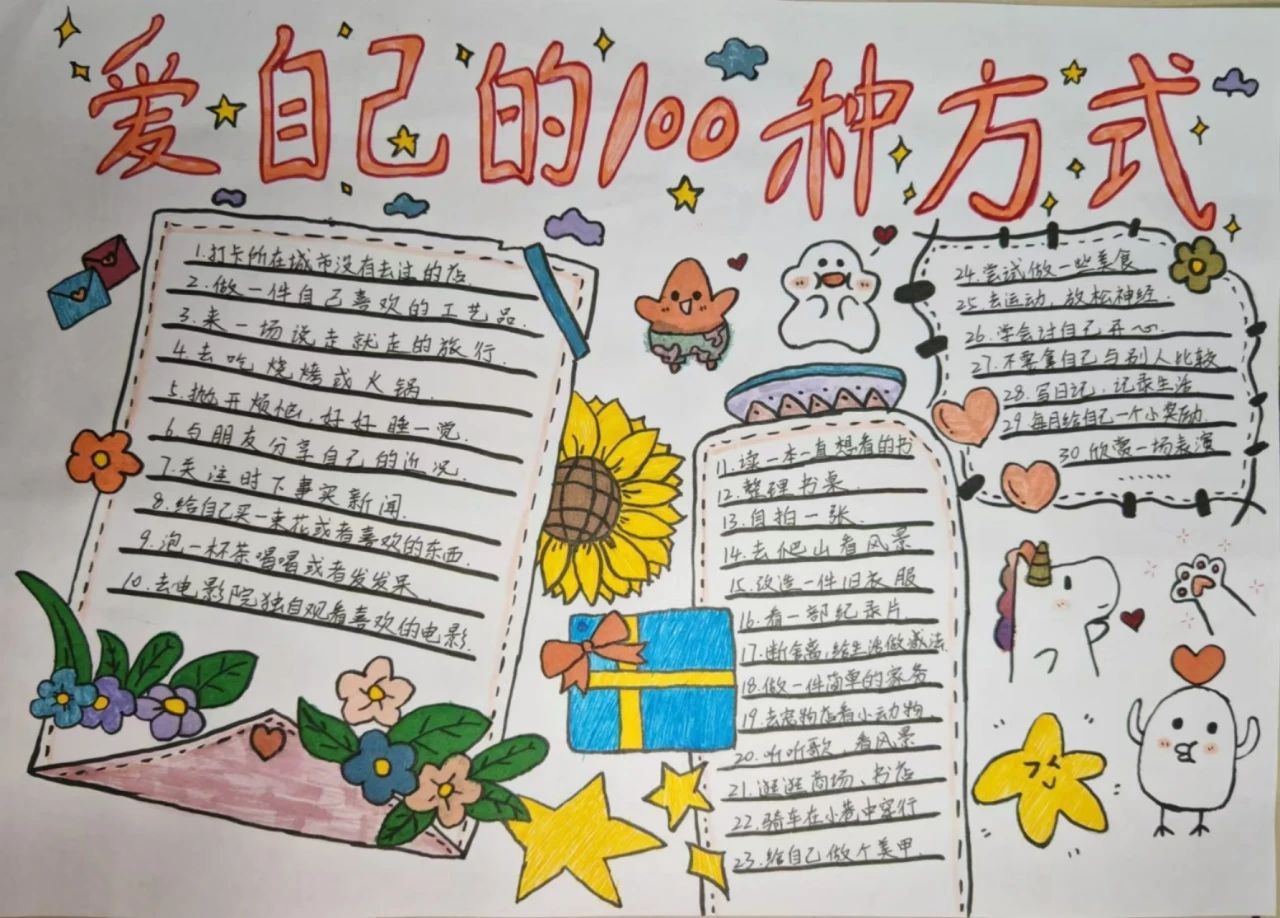 爱自己的100种方式
1.打卡所在城市没有去过的店.
2.做一件自己喜欢的工艺品.
3.来一场说走就走的旅行.
4.去吃烧烤或火锅.
5.抛开烦恼,好好睡一觉.
6.与朋友分享自己的近况.
7.关注时下事实新闻.
8.给自己买一束花或者喜欢的东西.
9.泡一杯茶喝喝或者发发呆.
10.去电影院独自观看喜欢的电影.
11.读一本一直想看的书
12.整理书桌.
13.自拍一张.
14.去爬山看风景
15.改造一件旧衣服
16.看一部纪录片.
17.断舍离,给生活做减法.
18.做一件简单的家务
19.去宠物店看小动物
20.听听歌,看风景
21.逛逛商场、书店
22.骑车在小巷中穿行
23.给自己做个美甲.
24.尝试做一些美食
25.去运动,放松神经.
26.学会讨自己开心.
27.不要拿自己与别人比较
28.写日记,记录生活
29.每月给自己一个小奖励.
30欣赏一场表演
......